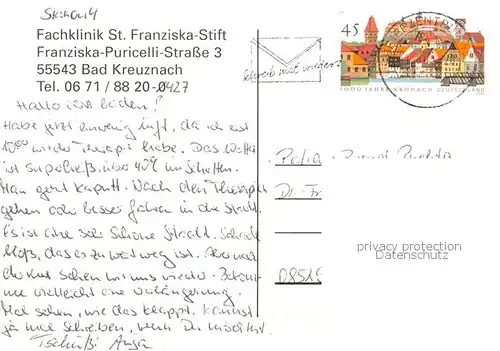 Station 4
Fachklinik St. Franziska-Stift
Franziska-Puricelli-Straße 3
55543 Bad Kreuznach
Tel. 06 71 / 88 20-0427
Hallo ihr beiden!
Habe jetzt ein wenig Luft, da ich erst
10⁰⁰ wieder Therapie habe. Das Wetter
ist superheiß, über 40°C im Schatten.
Man geht kaputt. Nach den Therapien
gehen oder besser fahren in die Stadt.
Es ist eine sehr schöne Stadt. Schade
bloß, das es zu weit weg ist. Aber nach
der Kur sehen wir uns wieder. Bekomme
vielleicht eine Verlängerung.
Mal sehen, wie das klappt. Kannst
ja mal schreiben, wenn Du möchtest.
Tschüßi Anja
Schreib mal wieder!
BRIEFZENTRUM
45
1000 JAHRE KRONACH DEUTSCHLAND
Petra
Dr.-Fr
privacy protection
Datenschutz
0851